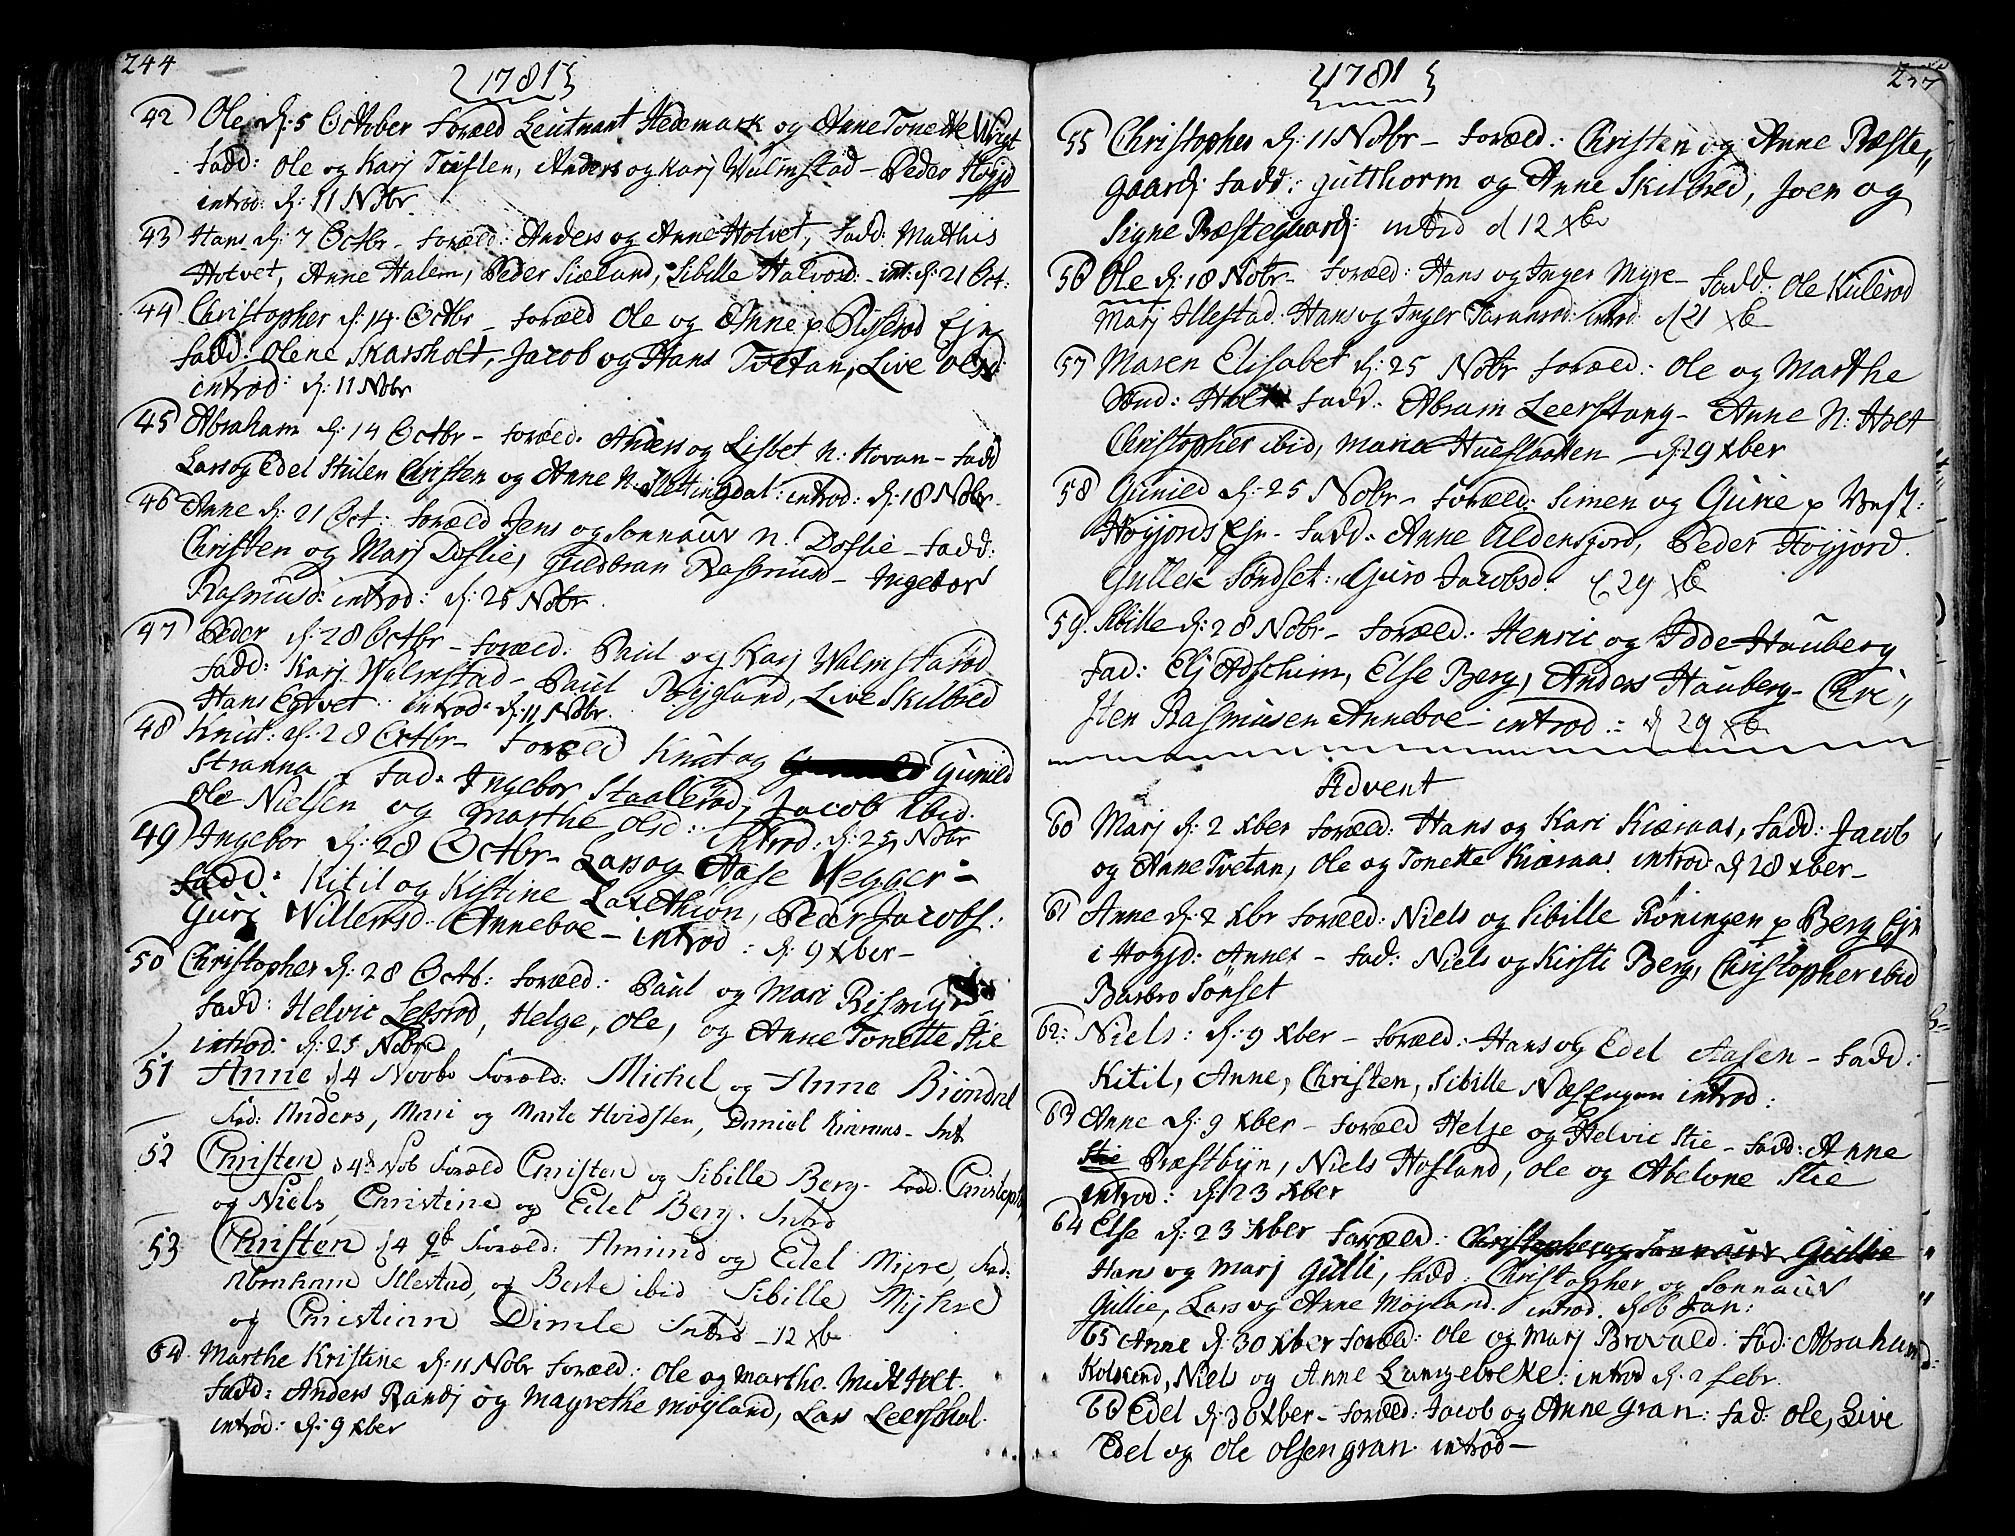 244
1781
42 Ole d: 5 October Foræld Leutnant Hedemark og Anne Tonette
Fadd: Ole og Karj Tuften, Anders og Karj Walmstad - Peder Høgjd
introd: d: 11 Nobr
43 Hans d: 7 Octbr - Foræld: Anders og Anne Holvet, Fadd: Matthis
Holvet, Anne Halem, Peder Siæland, Sibille Halvord: - int: d: 21 Oct:
44 Christopher d: 14 Octbr - Foræld Ole og Anne p Riserød Ejn
Fadd: Olene Skarsholt, Jacob og Hans Tvetan, Live
introd: d: 11 Nobr
45 Abraham d: 14 Octbr - Foræld: Anders og Lisbet N: Hovan - Fadd
Lars og Edel Stulen Christen og Anne N: introd: d: 18 Nobr
46 Anne d: 21 Oct: Foræld Jens og Sonnauv N: Doflie - Fadd:
Christen og Marj Doflie, Guldbran Rasmusd - Ingebor
Rasmusd: introd: d: 25 Nobr.
47 Peder d: 28 Octbr - Foræld: Paul og Karj Walmstad
Fadd: Karj Walmstad - Paul Røjgland, Live Skilbred
Hans Egtvet introd: d: 11 Nobr.
48 Knut: d: 28 Octbr - Foræld Knut og Gunild
Stranna Fad: Ingebor Staalerød, Jacob ibid.
Ole Nielsen og Marthe Olsd: introd: d: 25 Nobr
49 Ingebor d: 28 Octbr - Lars og Aase Wegger -
Fadd: Kitil og Kistine, Peder Jacobs:
Gurj Willerød: Anneboe - introd: d: 9 xber -
50 Christopher d: 28 Octb: Foræld: Paul og Mari Rismyr
Fadd: Helvic Lebsrød, Helge, Ole, og Anne Tonette Stie
introd: d: 25 Nobr
51 Anne d 4 Novbr Foræld: Michel og Anne Biøndal
Fad: Anders, Mari og Marte Hvidsten, Daniel Kiæraas - Int
52 Christen d 4d Nob Foræld Christen og Sibille Berg - Fadd. Christoph
og Niels, Christine og Edel Berg. Intrd
53 Christen d 4 9b Foræld: Amund og Edel Myre, Fad:
Abraham Illestad, og Berte ibid Sibille Myhre
og Christian Dimle Intrd - 12 xb
54. Marthe Kristine d: 11 Nobr Foræld: Ole og Marthe Midt Holt.
Fadd: Anders Randj og Magrethe Møjland, Lars Leerskal.
introd: d: 9 xber
1781
55 Christopher d: 11 Nobr - Foræld: Christen og Anne Præste„
gaard: Fadd: Gutthorm og Anne Skilbred, Joen og
Signe Præstegaard: intrd d 12 xbr
56 Ole d: 18 Nobr - Foræld: Hans og Inger Myre - Fadd: Ole Kulerød
Marj Illestad Hans og Inger Taranrød: intrd d 21 xb
57 Maren Elisabet d: 25 Nobr Foræld: Ole og Marthe
Sønd: Holt Fadd: Abram Leerstang - Anne N: Holt
Christopher ibid, Maria Hueslaatten - d: 29 xber
58 Gunild d: 25 Nobr - Foræld: Simen og Gurie p Vest:
Høgjords Ejn - Fadd: Anne Oldensfjord, Peder Høgjord.
Gullek Søndset: Guro Jacobsd. d 29 xb
59. Sibille d: 28 Nobr - Foræld: Henric og Idde Hauberg
Fad: Elj Adschim, Else Berg, Anders Hauberg - Chri„
sten Rasmusen Anneboe introd: d 29 xb
Advent
60 Marj d: 2 xber Foræld: Hans og Kari Kiæraas, Fadd: Jacob
og Anne Tvetan, Ole og Tonette Kiæraas introd d 28 xber -
61 Anne d: 2 xbr Foræld: Niels og Sibille Røningen p Berg Ejn
i Høgjd: Annex - Fad: Niels og Kirsti Berg, Christopher ibid
Barbro Sønset
62: Niels: d: 9 xber - Foræld: Hans og Edel Aasen - Fadd:
Kitil, Anne, Christen, Sibille introd:
63 Anne d: 9 xber - Foræld Helge og Helvic Stie - Fadd: Anne
Stie Præstbyn, Niels Hofland, Ole og Abelone Stie
introd: d: 23 xber
64 Else d: 23 xber Foræld: Christopher og Sonnauv Gullie
Hans og Marj Gulli, Fadd: Christopher og Sonnauv
Gullie, Lars og Anne Møjland. introd. d: 6 Jan:
65 Anne d: 30 xber Foræld: Ole og Marj Brovald. Fad: Abraham
Kolskend, Niels og Anne Langebrekke: introd d: 2 febr.
66 Edel d: 30 xber - Foræld: Jacob og Anne Gran: Fad: Ole, Live
Edel og Ole Olsen Gran. introd -